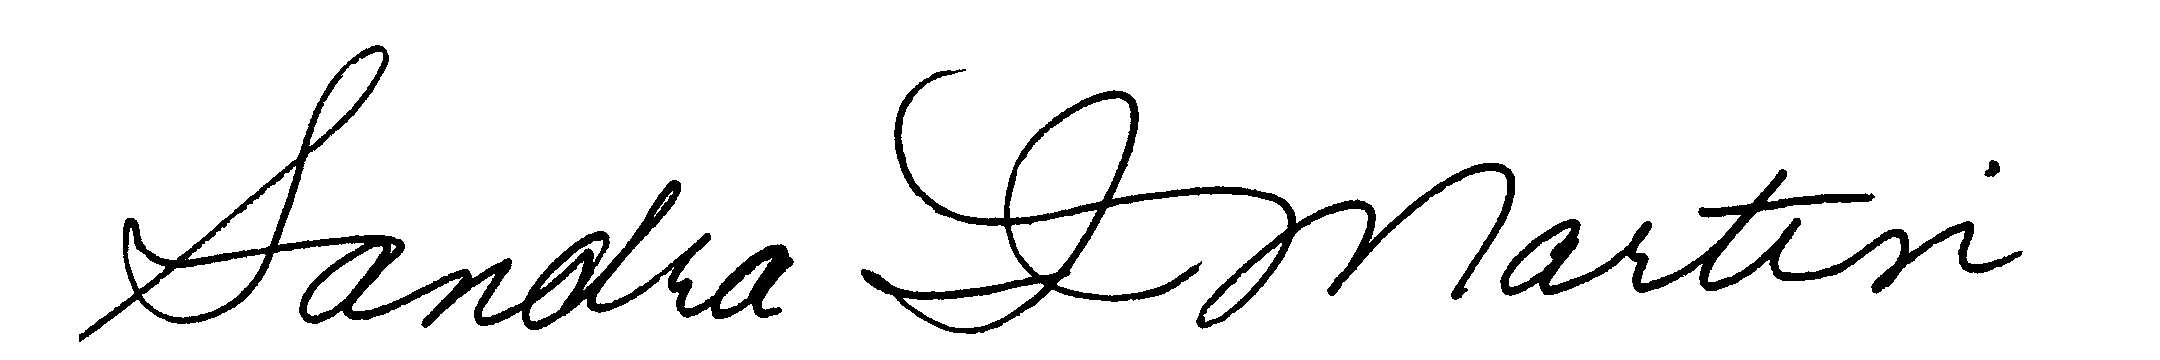 Sandra L Martin